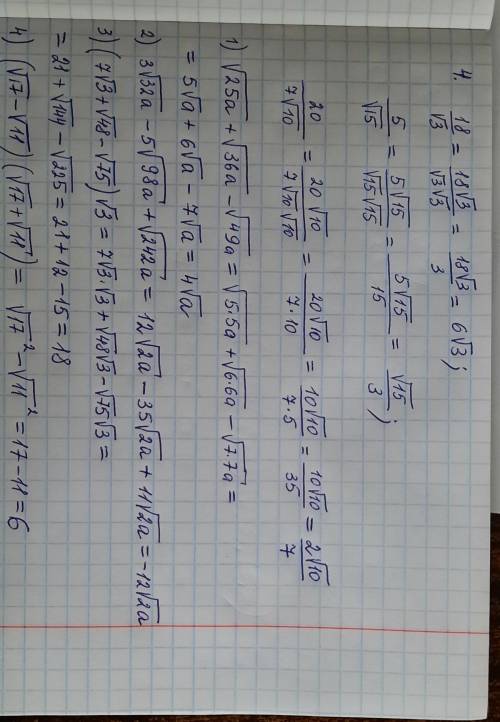 4. 18/√3 = 18√3/√3√3 = 18√3/3 = 6√3;
5/√15 = 5√15/√15√15 = 5√15/15 = √15/3;
20/7√10 = 20√10/7√10√10 = 20√10/7·10 = 10√10/7·5 = 10√10/35 = 2√10/7
1) √25a + √36a - √49a = √5·5a + √6·6a - √7·7a =
= 5√a + 6√a - 7√a = 4√a
2) 3√32a - 5√98a + √242a = 12√2a - 35√2a + 11√2a = -12√2a
3) (7√3 + √48 - √75)√3 = 7√3·√3 + √48√3 - √75√3 =
= 21 + √144 - √225 = 21 + 12 - 15 = 18
4) (√17 - √11)(√17 + √11) = √17² - √11² = 17 - 11 = 6